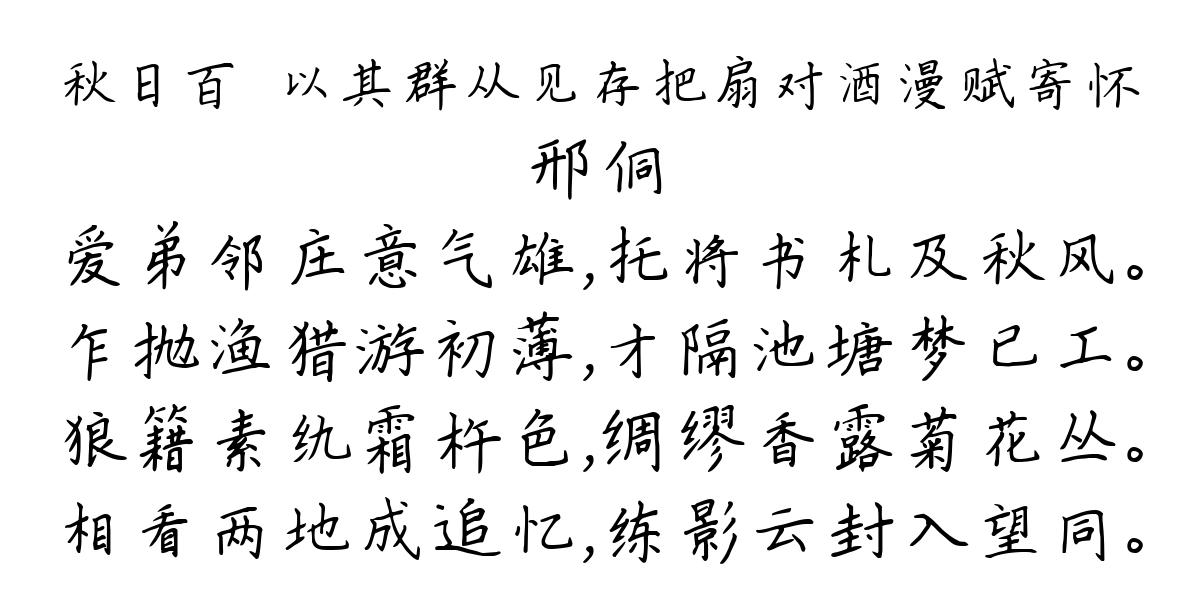 秋日百 以其群从见存把扇对酒漫赋寄怀
邢侗
爱弟邻庄意气雄,托将书札及秋风。
乍抛渔猎游初薄,才隔池塘梦已工。
狼籍素纨霜杵色,绸缪香露菊花丛。
相看两地成追忆,练影云封入望同。